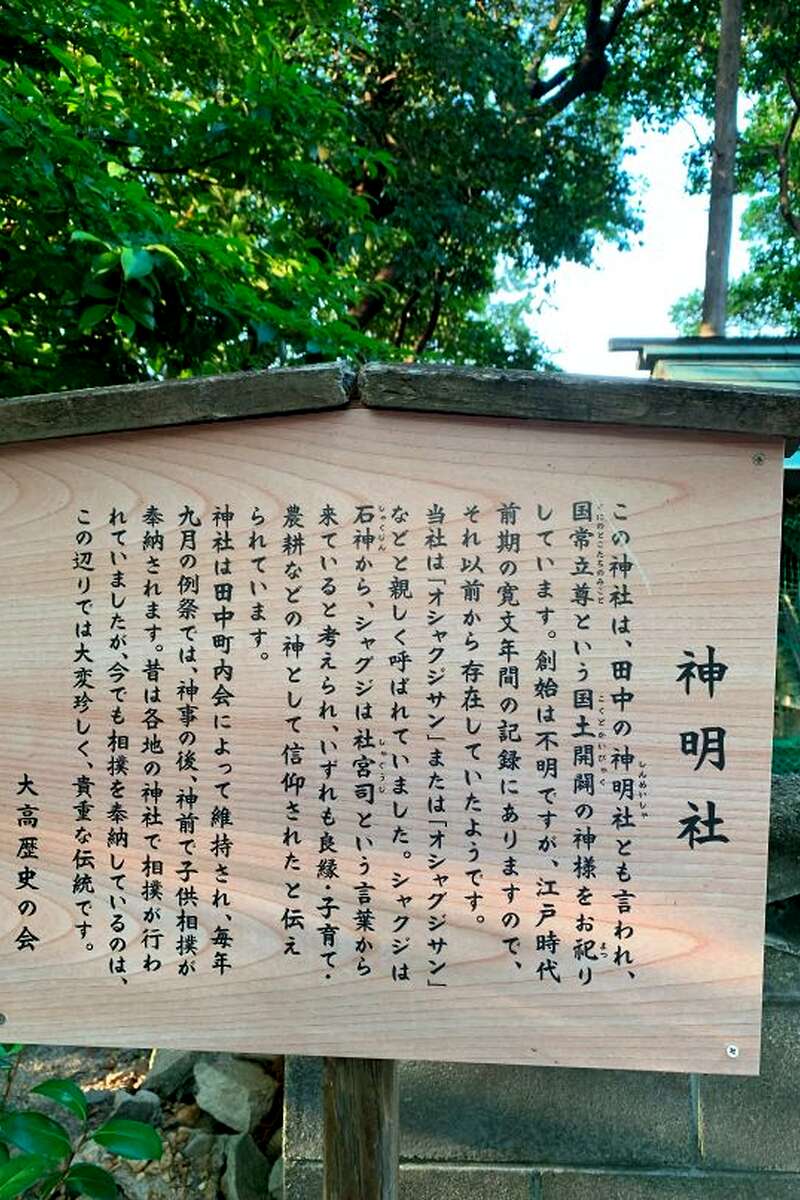 神明社
この神社は、田中の神明社とも言われ、
国常立尊という国土開闢の神様をお祀り
しています。創始は不明ですが、江戸時代
前期の寛文年間の記録にありますので、
それ以前から存在していたようです。
当社は「オシャクジサン」または「オシャグジサン」
などと親しく呼ばれていました。シャクジは
石神から、シャグジは社宮司という言葉から
来ていると考えられ、いずれも良縁・子育て・
農耕などの神として信仰されたと伝え
られています。
神社は田中町内会によって維持され、毎年
九月の例祭では、神事の後、神前で子供相撲が
奉納されます。昔は各地の神社で相撲が行わ
れていましたが、今でも相撲を奉納しているのは、
この辺りでは大変珍しく、貴重な伝統です。
大高歴史の会